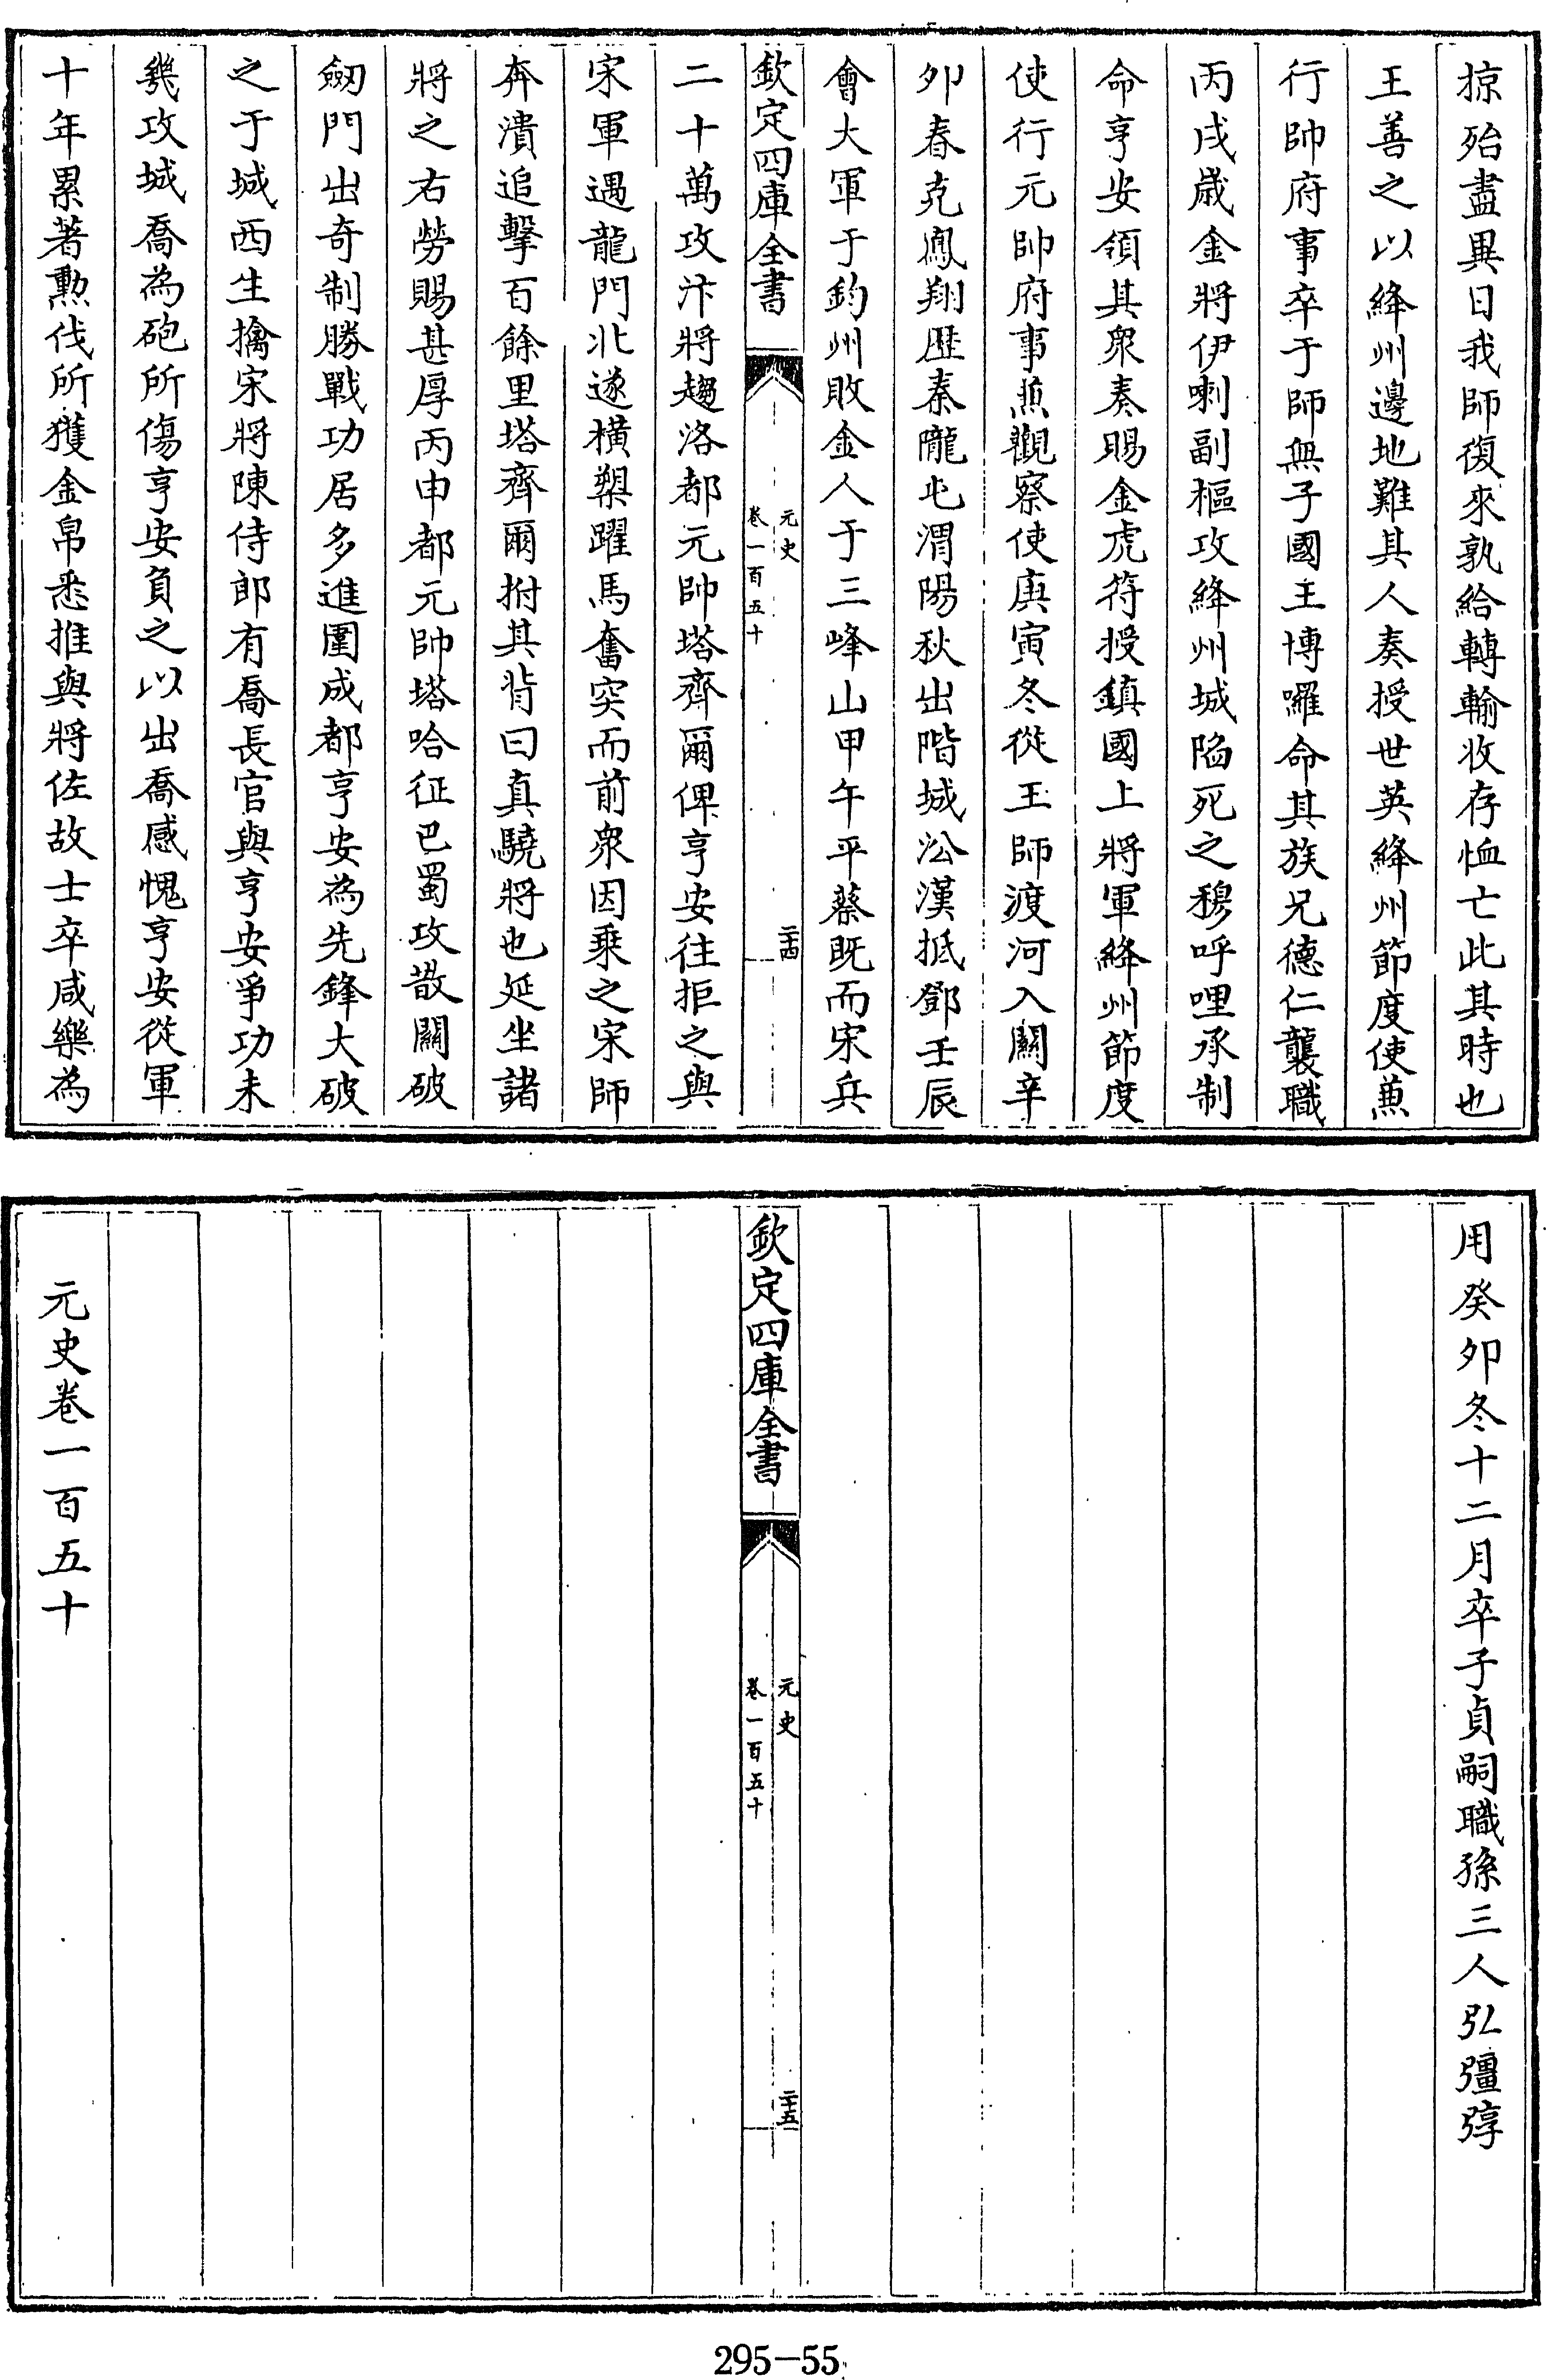 掠殆盡異日我師復來孰給轉輸收存恤亡此其時也
王善之以絳州邊地難其人奏授世英絳州節度使兼
行帥府事卒于師無子國王博囉命其族兄德仁襲職
丙戌歲金將伊喇副樞攻絳州城陷死之穆呼哩承制
命亨安領其衆奏賜金虎符授鎮國上將軍絳州節度
使行元帥府事兼觀察使庚寅冬從王師渡河入關辛
夘春克鳳翔歴秦隴屯渭陽秋出階城沿漢抵鄧壬辰
會大軍于鈞州敗金人于三峰山甲午平蔡既而宋兵
欽定四庫全書
元史
卷一百五十
二十四
二十萬攻汴將趨洛都元帥塔齊爾俾亨安往拒之與
宋軍遇龍門北遂横槊躍馬奮突而前衆因乗之宋師
奔潰追擊百餘里塔齊爾拊其背曰真驍將也延坐諸
將之右勞賜甚厚丙申都元帥塔哈征巴蜀攻散關破
劒門出奇制勝戰功居多進圍成都亨安為先鋒大破
之于城西生擒宋將陳侍郎有喬長官與亨安爭功未
幾攻城喬為砲所傷亨安負之以出喬感愧亨安從軍
十年累著勲伐所獲金帛悉推與將佐故士卒咸樂為
用癸夘冬十二月卒子貞嗣職孫三人弘彊弴
欽定四庫全書
元史
卷一百五十
二十五
元史卷一百五十
295-55